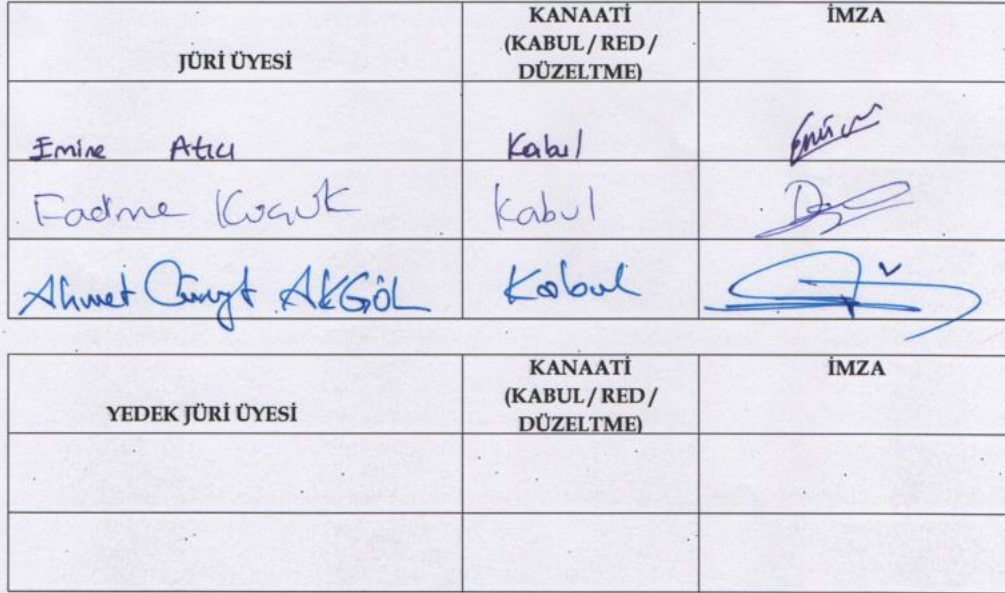 JÜRİ ÜYESİ KANAATİ (KABUL / RED / DÜZELTME) İMZA
Emine Atıcı Kabul
Fadime Küçük Kabul
Ahmet Cüneyt AKGÖL Kabul
YEDEK JÜRİ ÜYESİ KANAATİ (KABUL / RED / DÜZELTME) İMZA